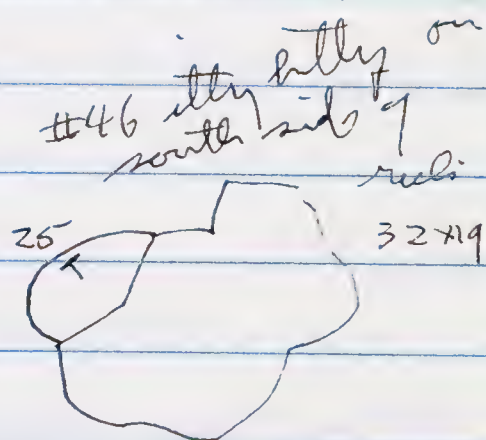 #46 itty bitty on
south side of
25
32x19